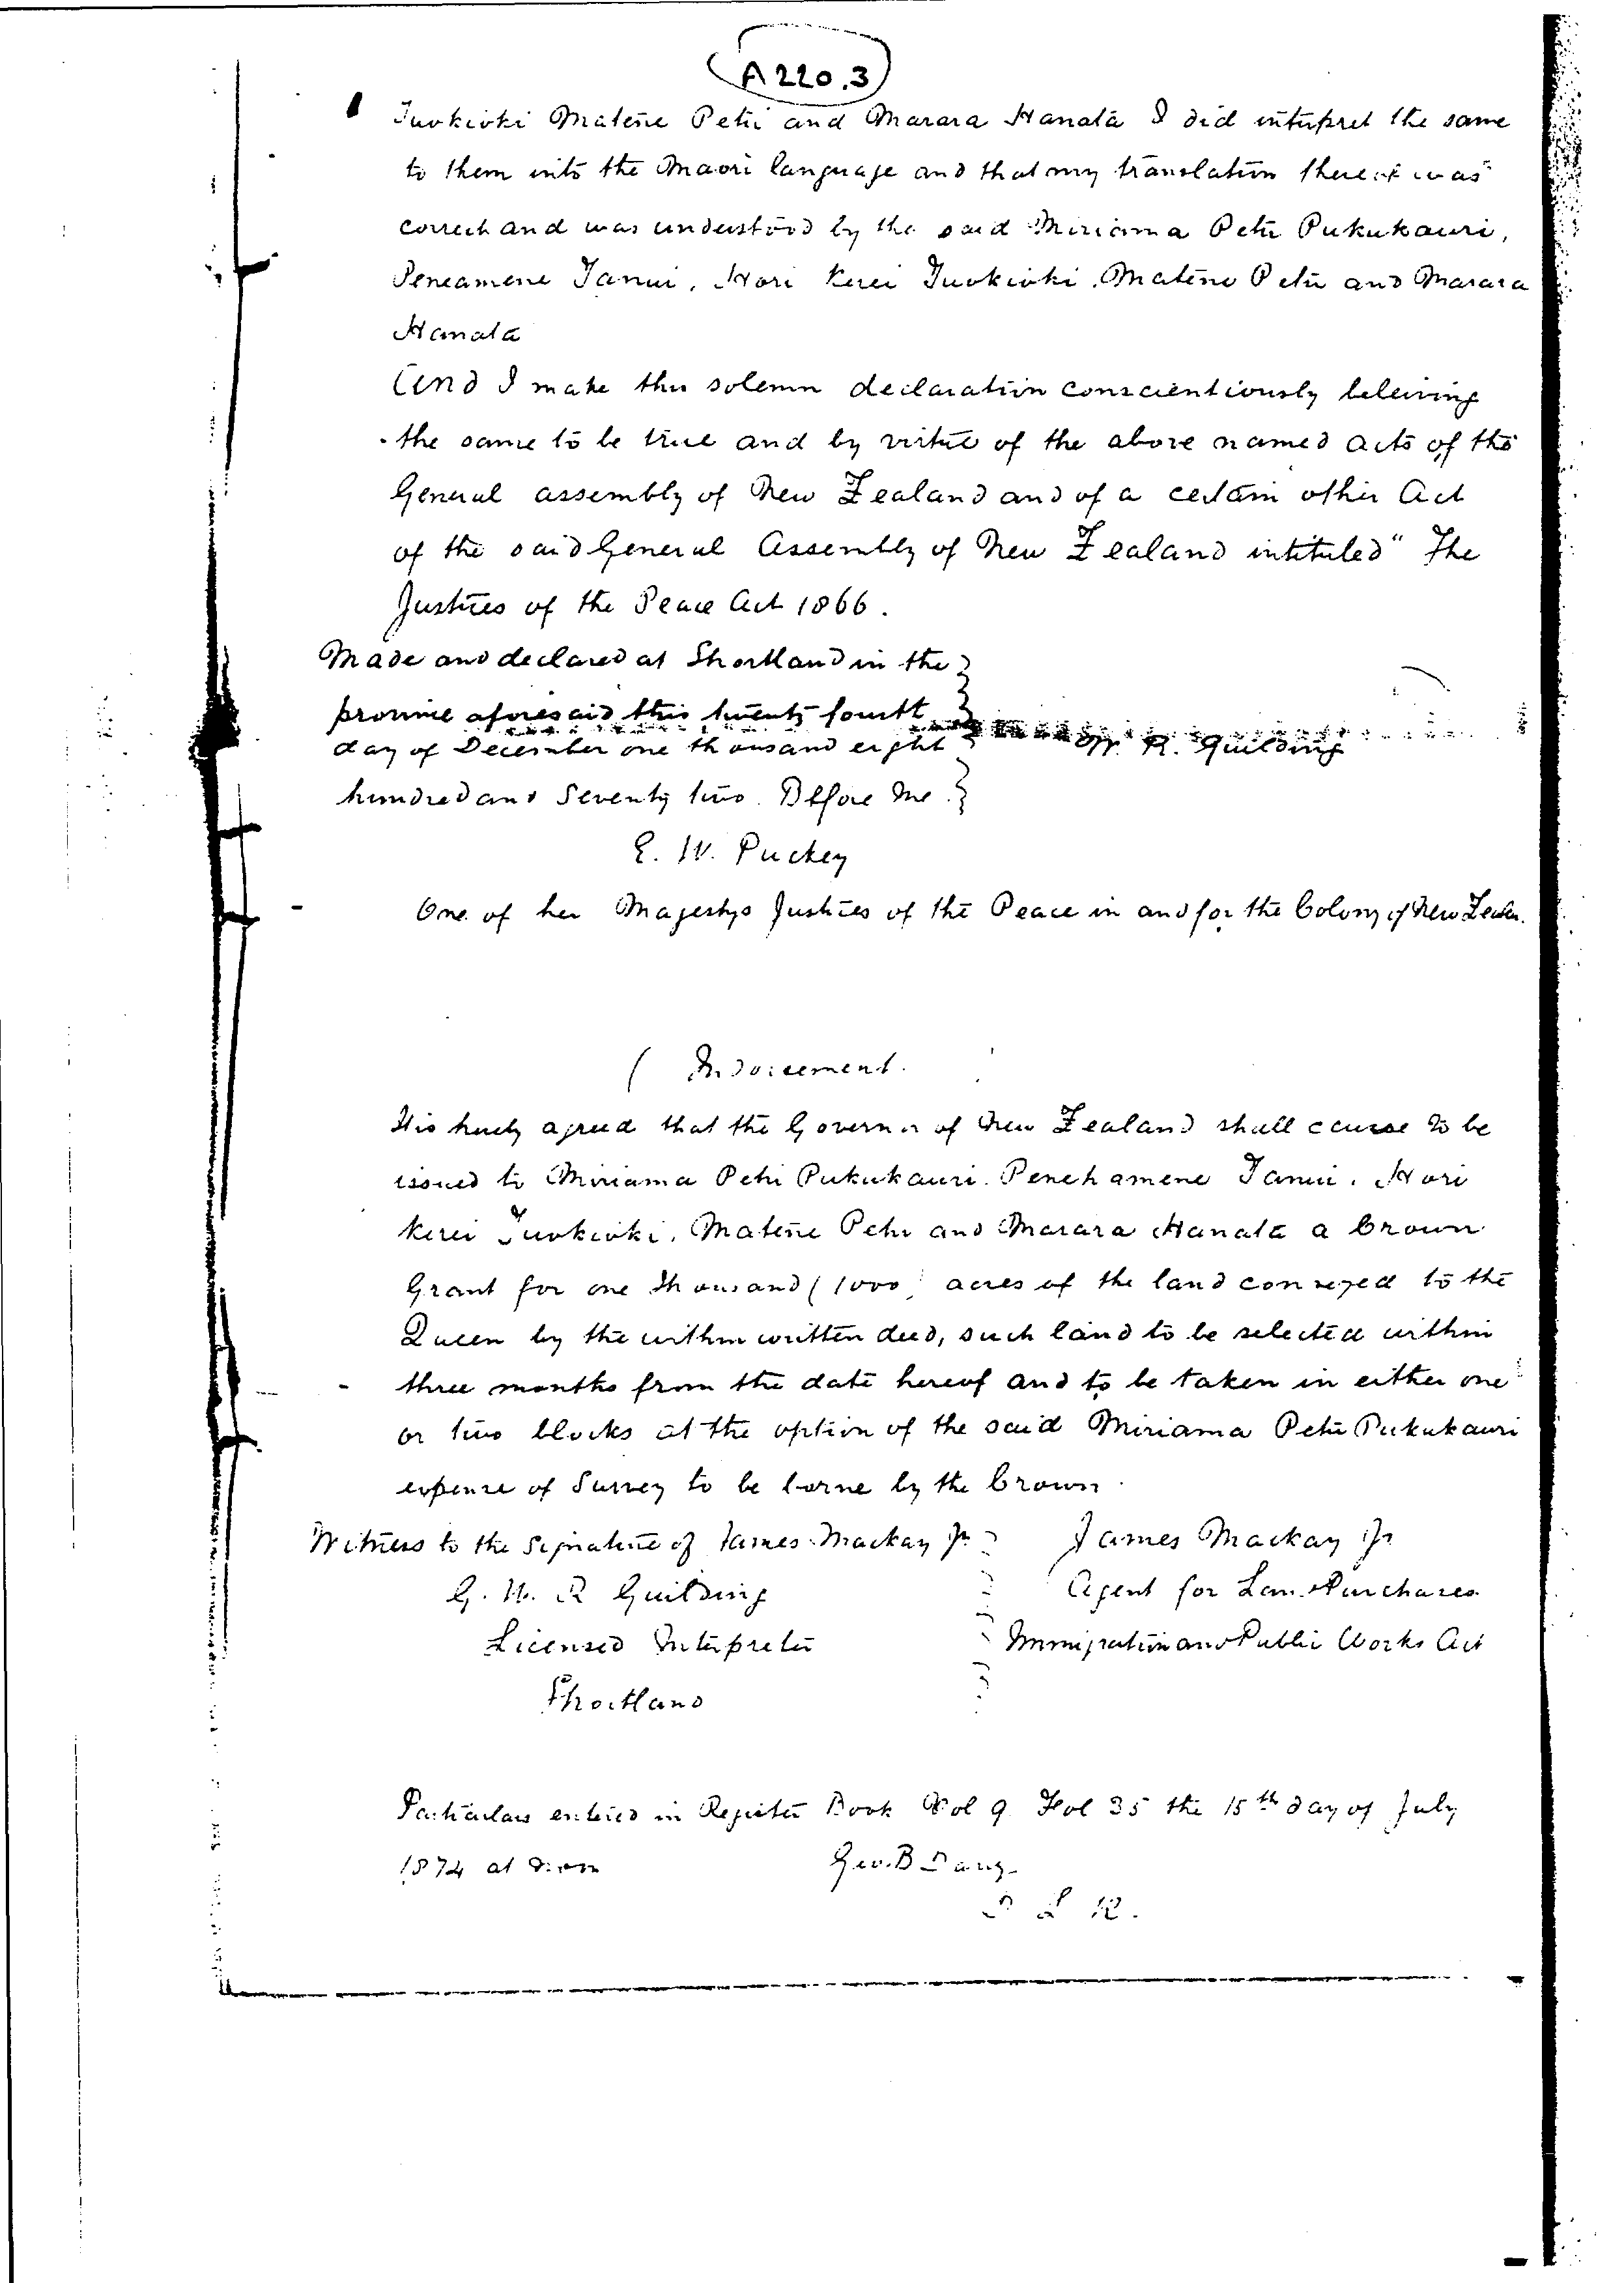 A220.3
Tuokioki Matene Petu and Marara Hanata I did interpret the same
to them into the Maori language and that my translation thereof was
correct and was understood by the said Miriama Petu Pukukauri,
Peneamene Tanui, Hori Kerei Tuokioki, Matene Petu and Marara
Hanata
And I make this solemn declaration conscientiously beleiving
the same to be true and by virtue of the above named acts of the
General assembly of New Zealand and of a certain other Act
of the said General Assembly of New Zealand intituled "The
Justices of the Peace Act 1866.
Made and declared at Shortland in the
province aforesaid this twenty fourth
day of December one thousand eight W. R. Guilding
hundred and Seventy two. Before me.
E. W. Puckey
One of her Majestys Justices of the Peace in and for the Colony of New
( Indorsement.
It is hereby agreed that the Governor of New Zealand shall cause to be
issued to Miriama Petu Pukukauri. Penehamene Tanui. Hori
Kerei Tuokioki, Matene Petu and Marara Hanata a Crown
Grant for one thousand (1000) acres of the land conveyed to the
Queen by the within written deed, such land to be selected within
three months from the date hereof and to be taken in either one
or two blocks at the option of the said Miriama Petu Pukukauri
expense of Survey to be borne by the Crown.
Witness to the Signature of James Mackay Jr James Mackay Jr
G. W. R Guilding Agent for Land Purchases
Licensed Interpreter Immigration and Public Works Act
Shortland
Particulars entered in Register Book Vol 9 Fol 35 the 15th day of July
1874 at Geo. B
L R.